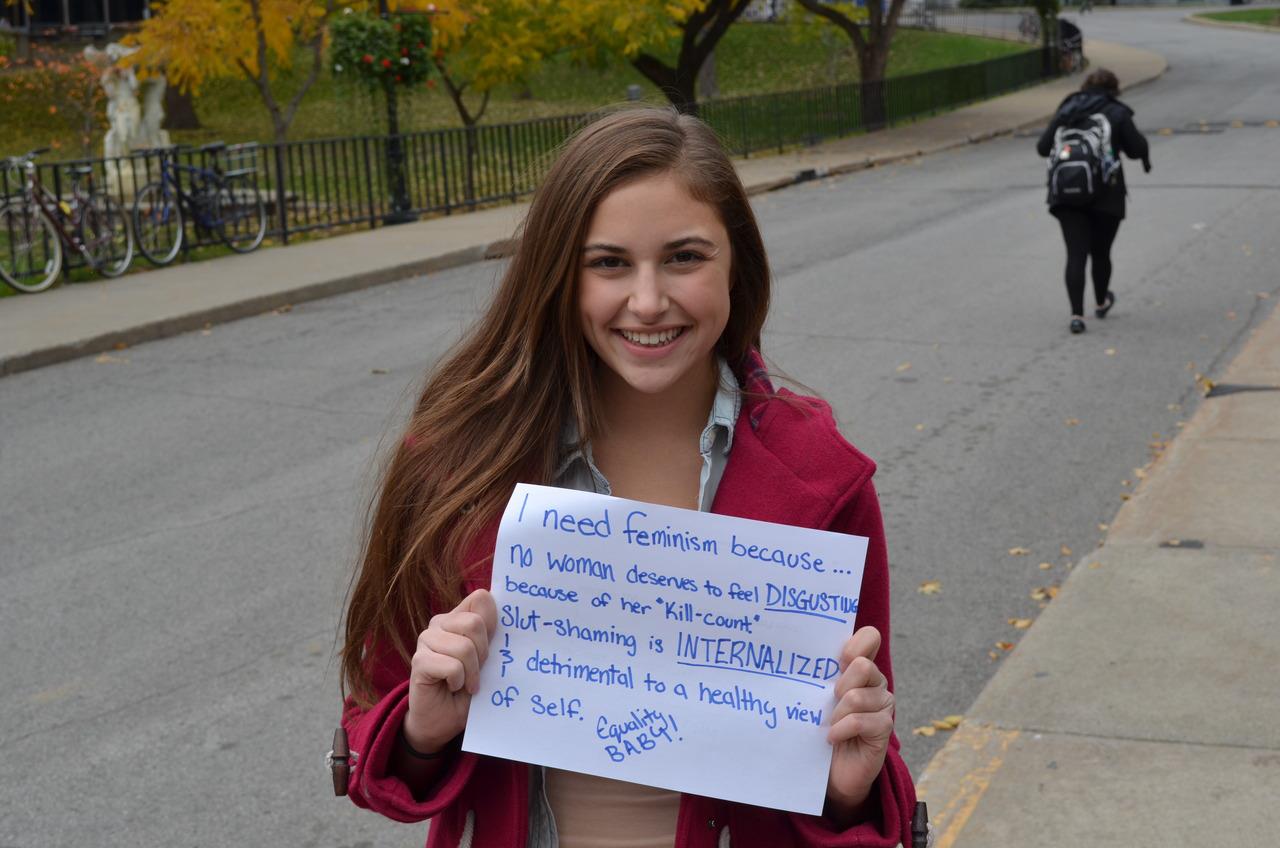 I need feminism because...
no woman deserves to feel DISGUSTING
because of her "Kill-count."
Slut-shaming is INTERNALIZED
& detrimental to a healthy view
of self.
Equality
BABY!